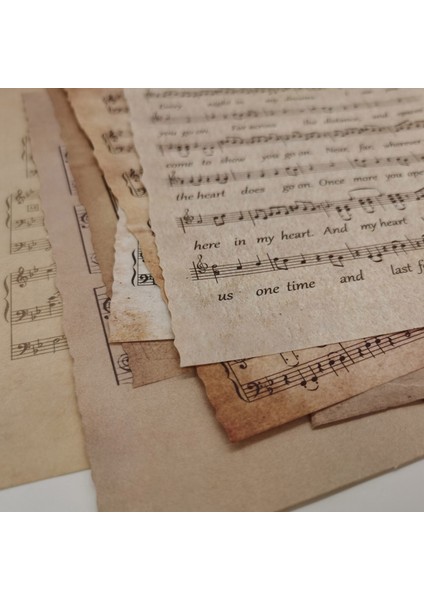 Every night in my dreams
you go on. Far across the distance, and
come to show you go on. Near, far, wherever
the heart does go on. Once more you open
here in my heart. And my heart
us one time and last f